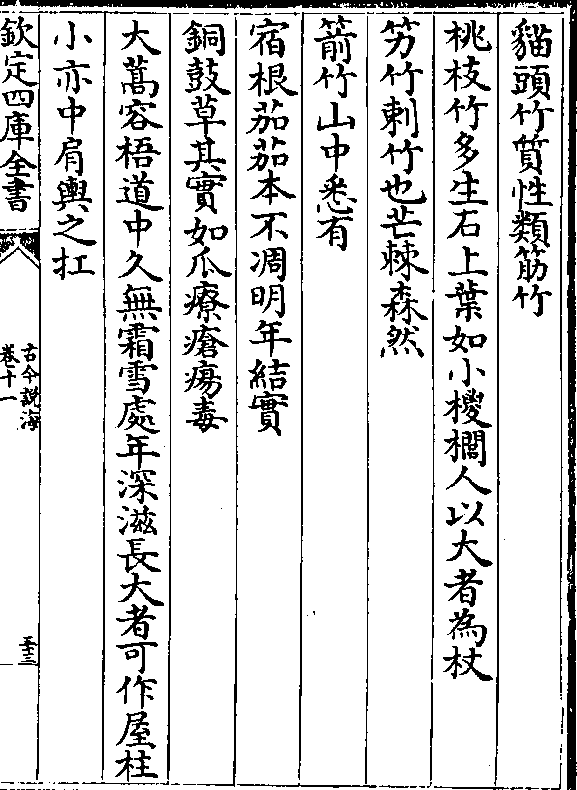 貓頭竹質性類筋竹
桃枝竹多生石上葉如小椶櫚人以大者為杖
竻竹刺竹也芒棘森然
箭竹山中悉有
宿根茄茄本不凋明年結實
銅鼓草其實如瓜療瘡瘍毒
大蒿容梧道中久無霜雪處年深滋長大者可作屋柱
小亦中肩輿之扛
欽定四庫全書
古今說海
卷十一